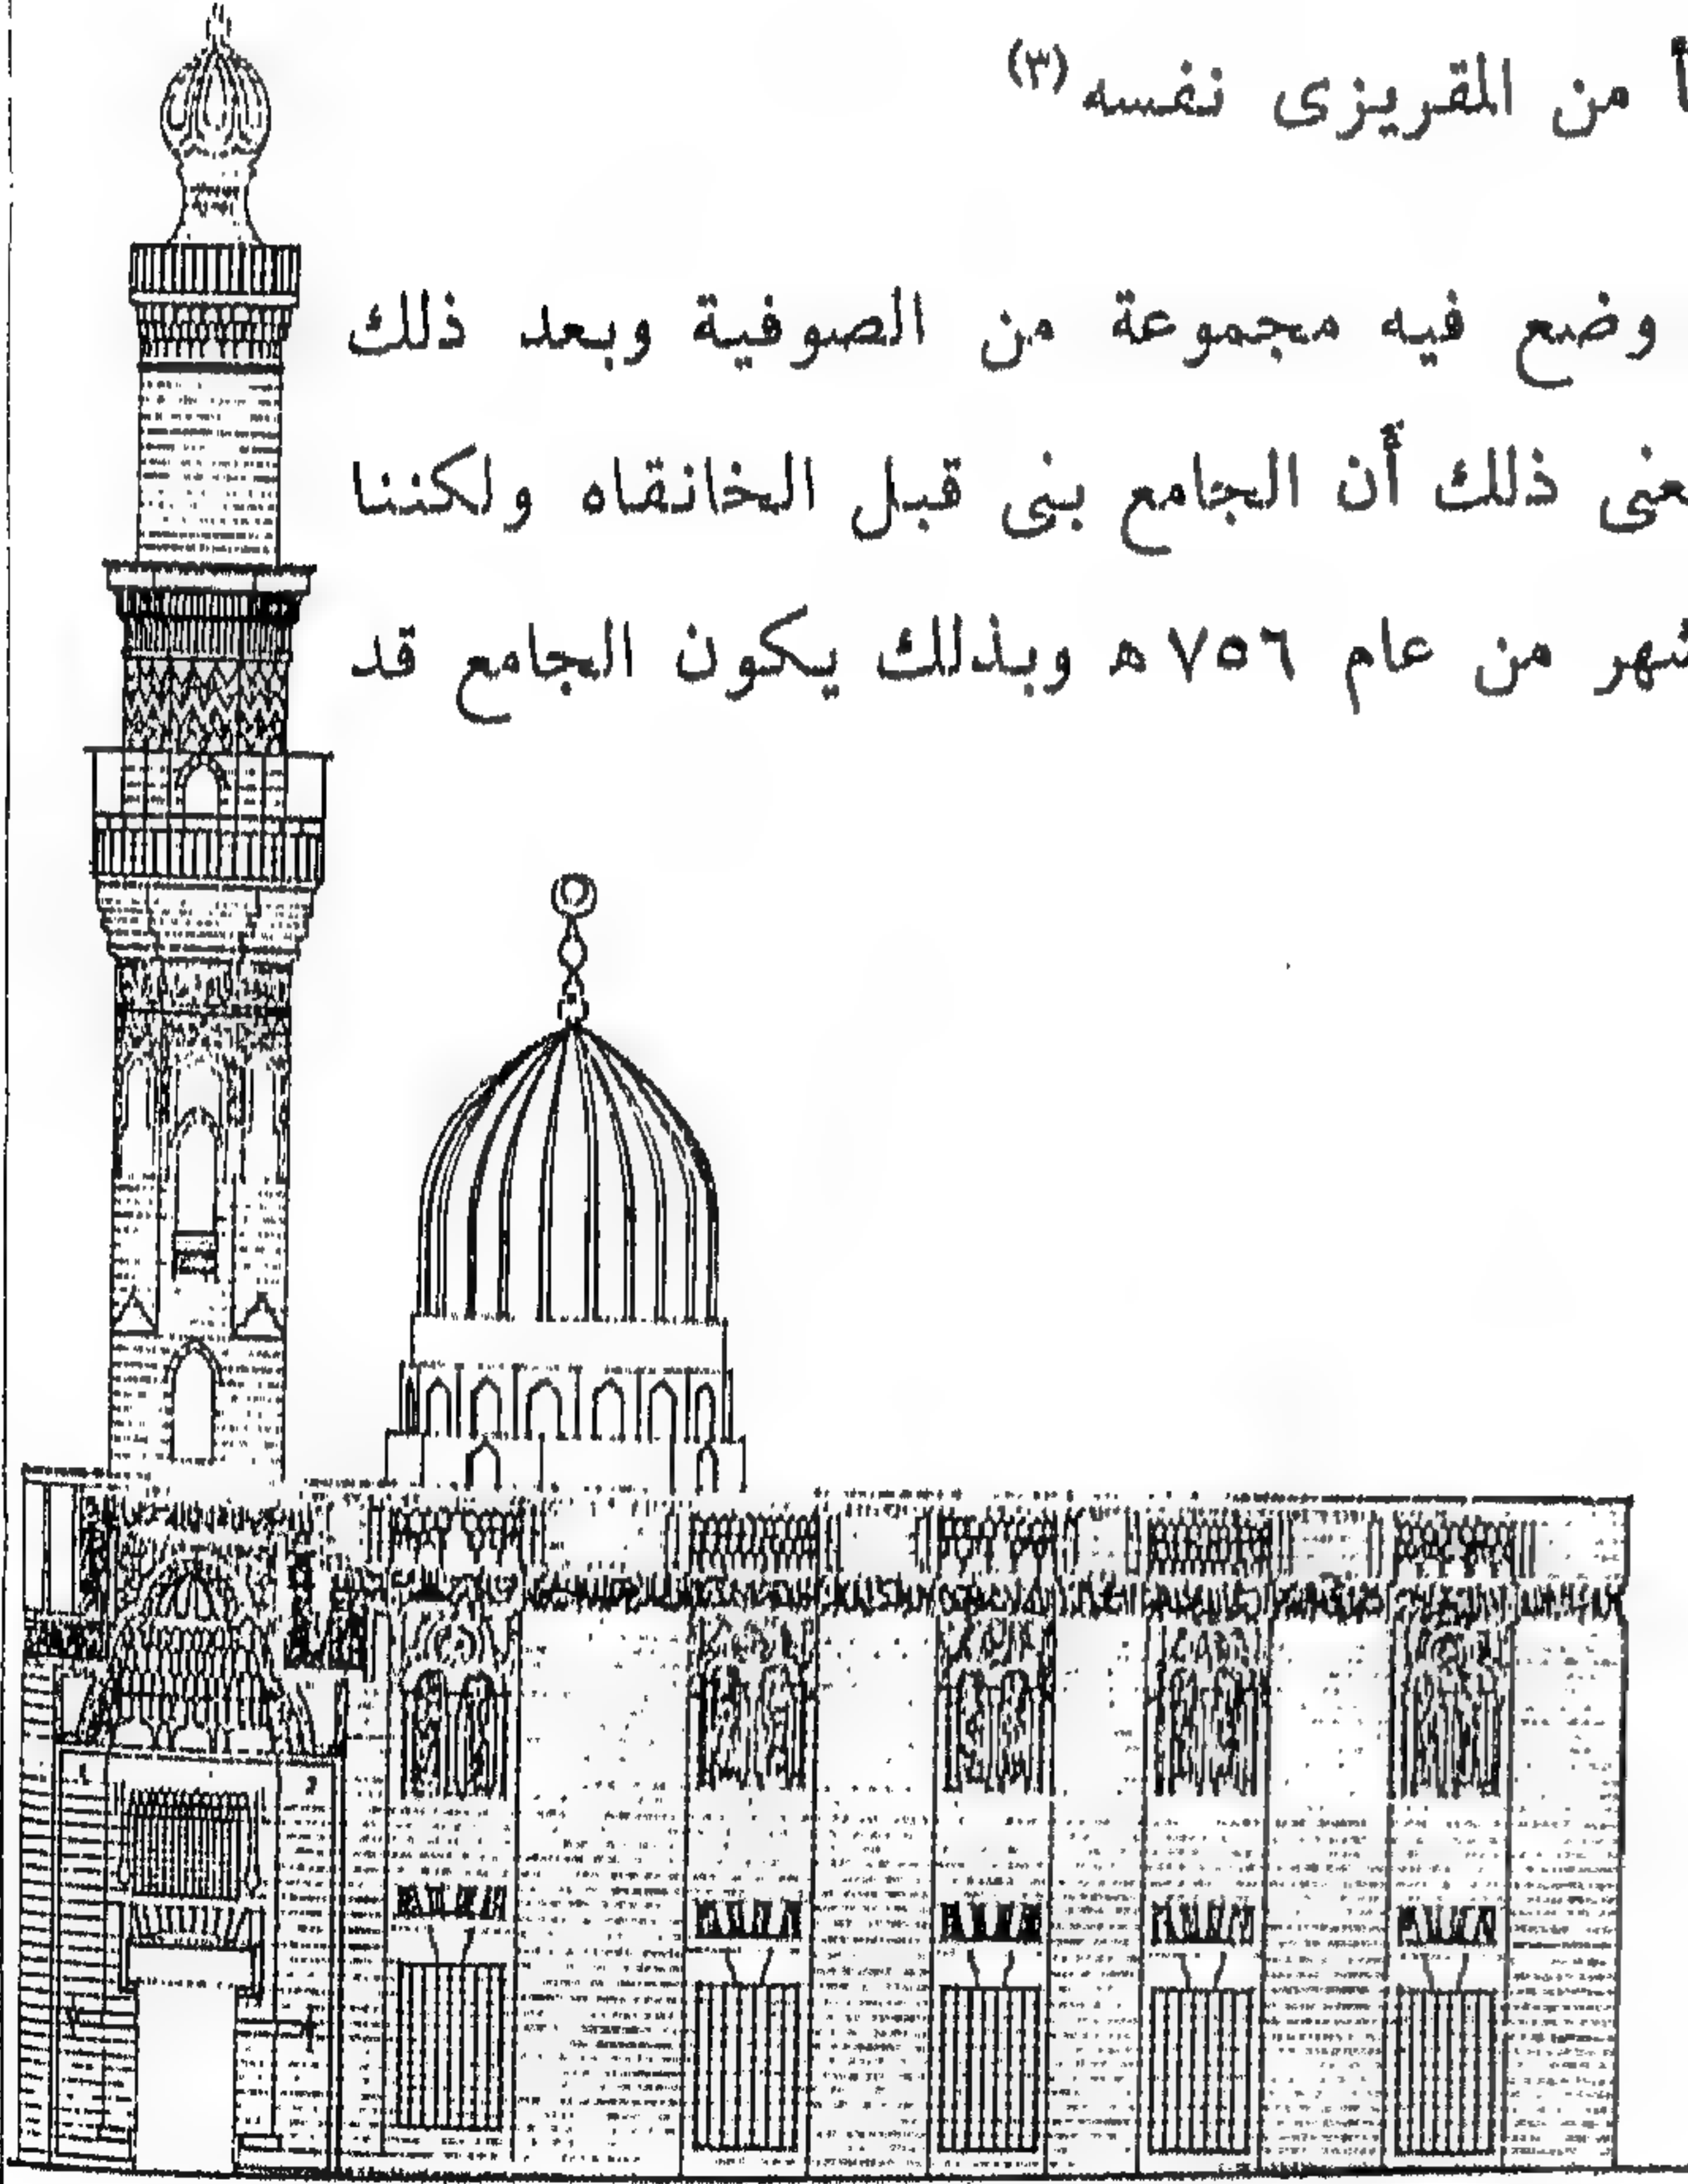 من المقريزى نفسه(٣)
وضع فيه مجموعة من الصوفية وبعد ذلك
ذلك أن الجامع بنى قبل الخانقاه ولكننا
من عام ٧٥٦ ه وبذلك يكون الجامع قد